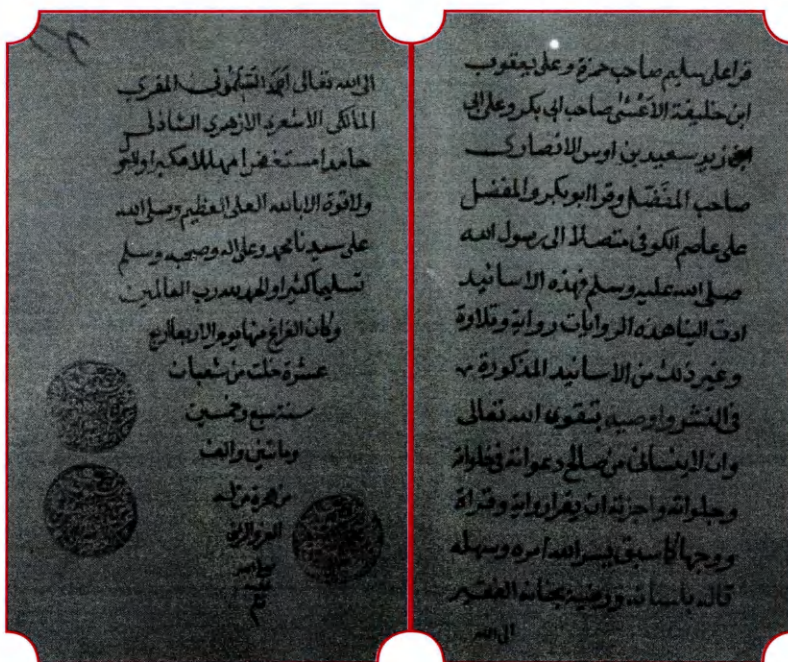 قرا على سليم صاحب حمزة وعلى يعقوب
ابن خليفة الاعشى صاحب ابى بكر وعلى ابى
زيد سعيد بن اوس الانصارى
صاحب المفضل وقرا ابو بكر والمفضل
على عاصم الكوفى متصلا الى رسول الله
صلى الله عليه وسلم فهذه الاسانيد
ادت الينا هذه الروايات رواية وتلاوة
وغير ذلك من الاسانيد المذكورة
فى النشر واوصيه بتقوى الله تعالى
وان لا ينسانى من صالح دعواته فى خلواته
وجلواته واجزته ان يقرا رواية وقراة
ووجها كما سبق يسر الله امره وسهله
قاله بلسانه ورضيه بجنانه الفقير
الى الله
الى الله تعالى احمد المقري
المالكى الاشعرى الازهرى الشاذلى
حامدا مستغفرا مهللا مكبرا ولا حو
ولا قوة الا بالله العلى العظيم وصلى الله
على سيدنا محمد وعلى اله وصحبه وسلم
تسليما كثيرا والحمد لله رب العالمين
وكان الفراغ منها يوم الاربعا اربع
عشرة خلت من شعبان
سنة سبع وخمسين
وماتين والف
من هجرة من له
العز والشرف